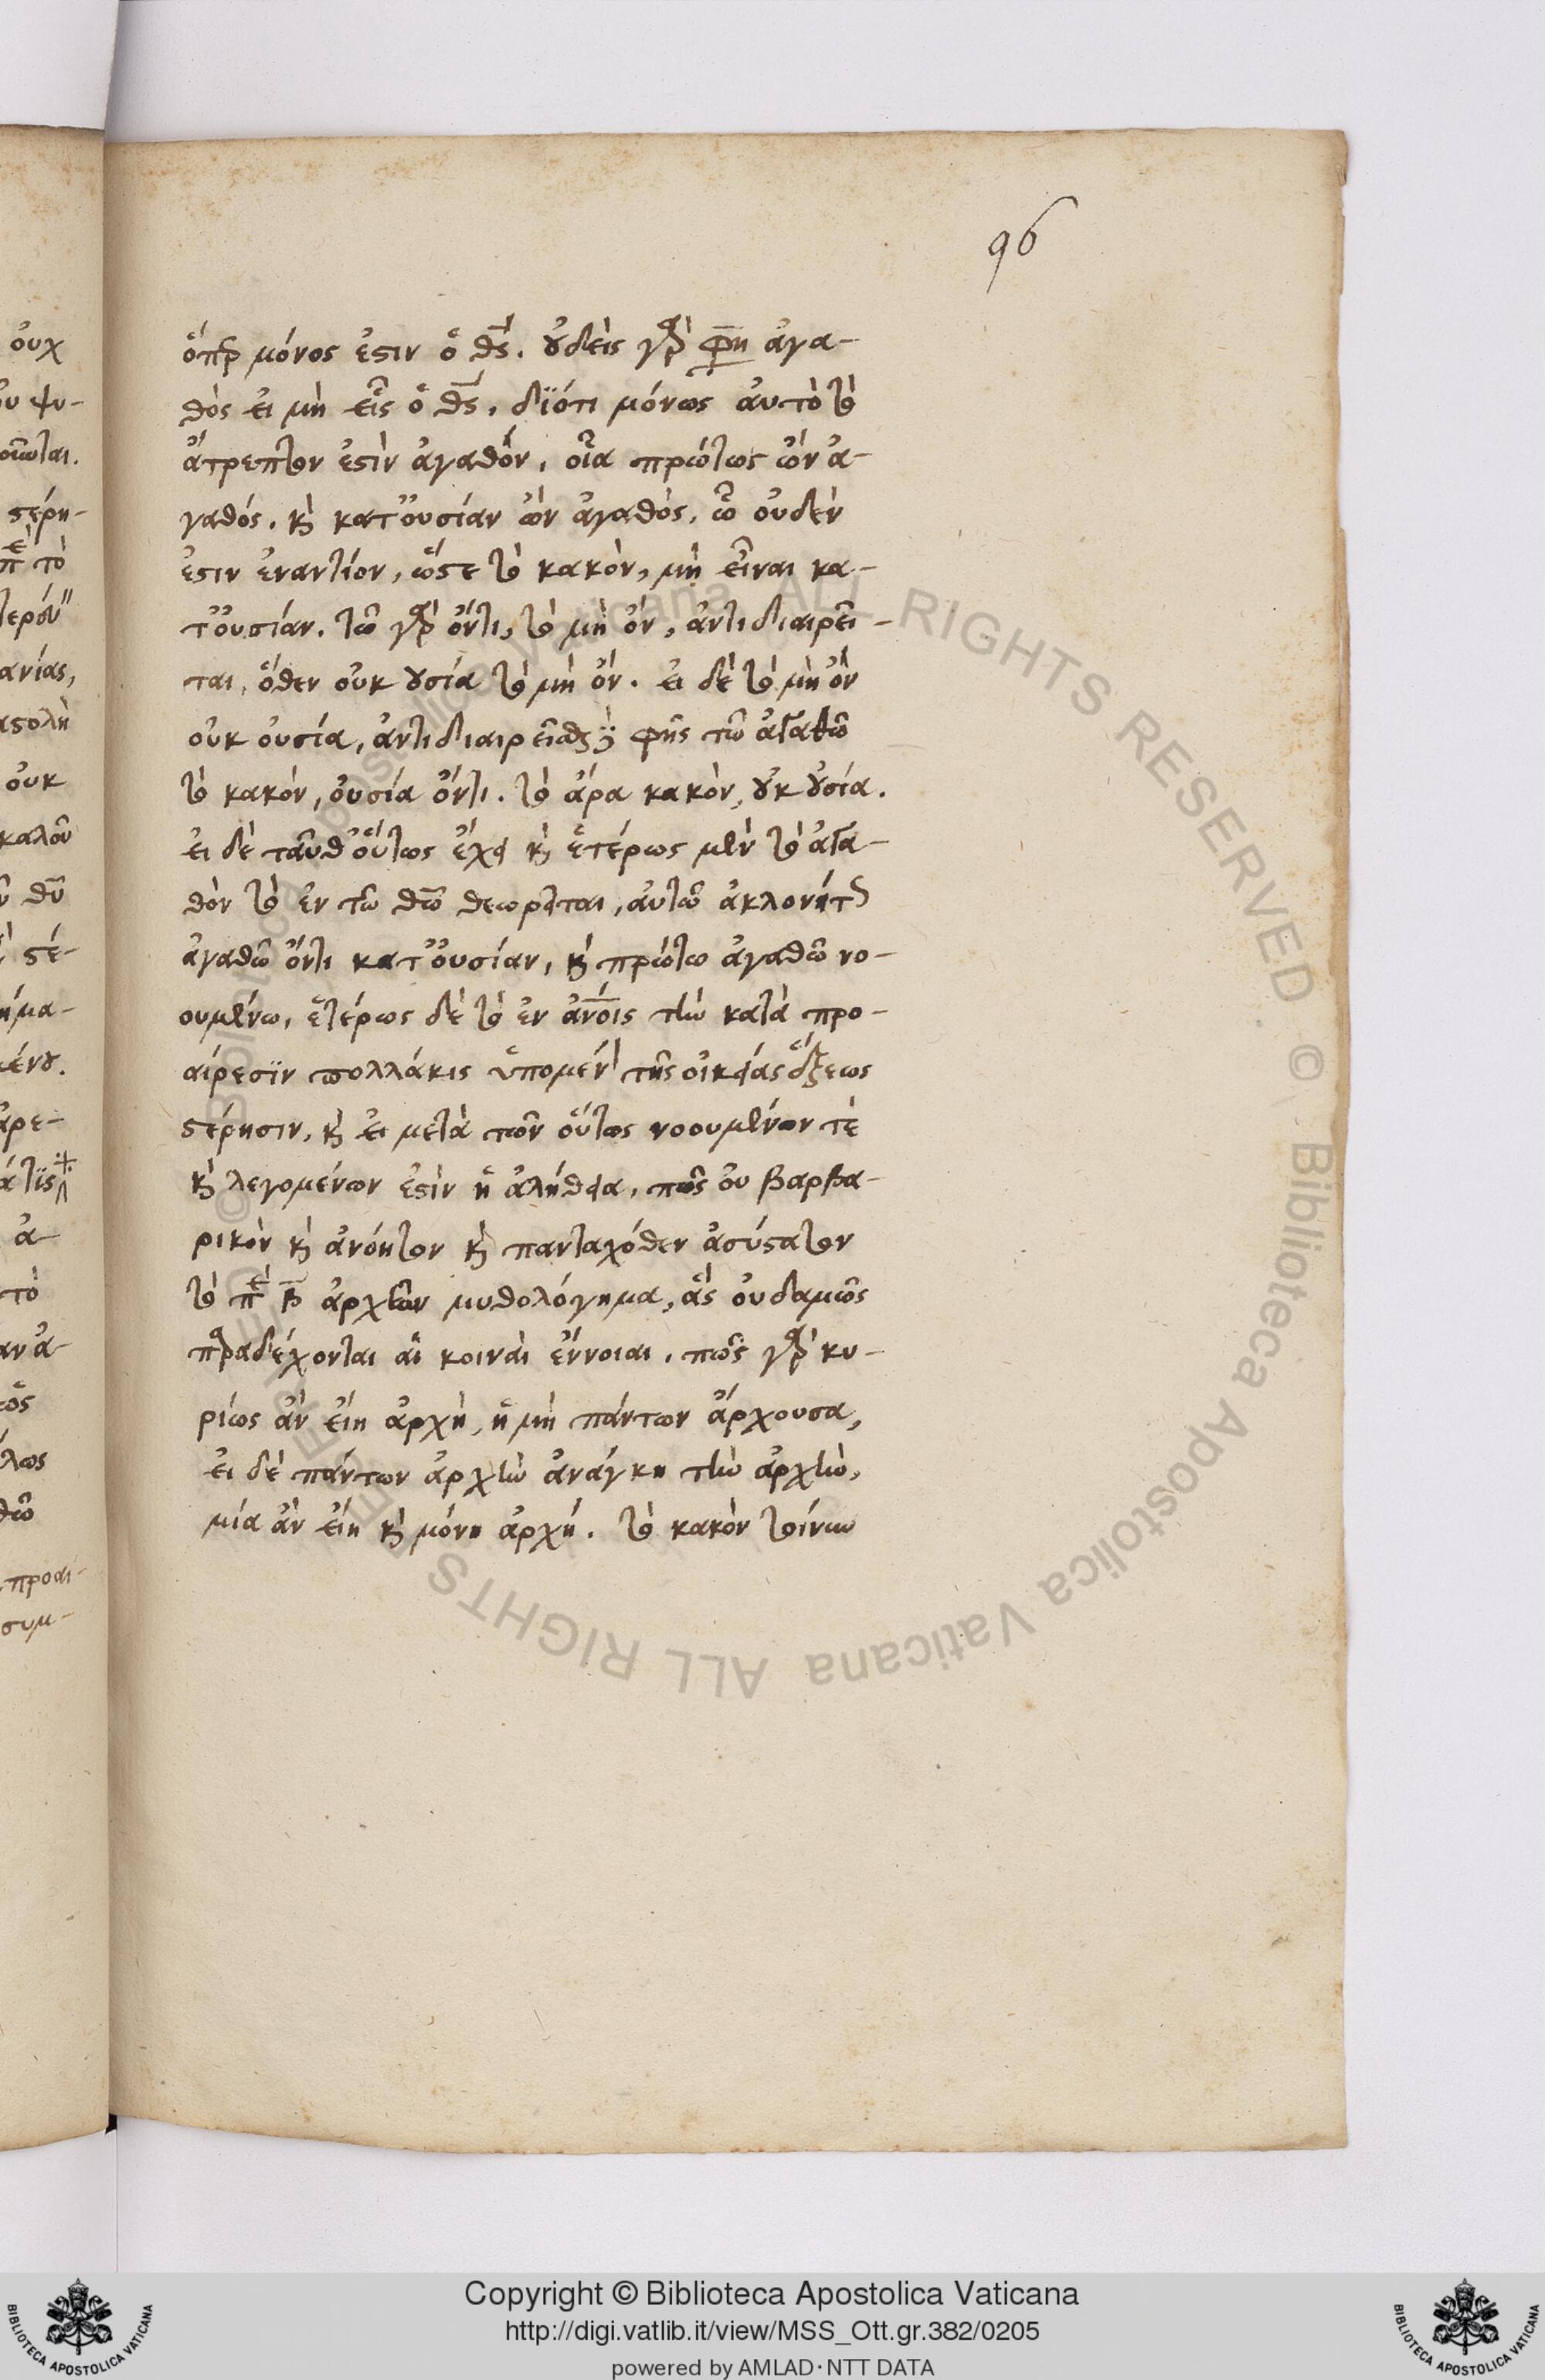 96
ὅπερ μόνος ἐστιν ὁ θς. οὐδεὶς γὰρ φη ἀγα-
θὸς εἰ μὴ εἷς ὁ θς, διότι μόνως αὐτὸ τὸ
ἄτρεπτον ἐστὶν ἀγαθὸν, οἷα πρώτως ὢν ἀ-
γαθός. καὶ κατ' οὐσίαν ὢν ἀγαθὸς, ᾧ οὐδὲν
ἐστιν ἐναντίον, ὥστε τὸ κακὸν, μὴ εἶναι κα-
τ' οὐσίαν. τῶ γὰρ ὄντι, τὸ μὴ ὂν, ἀντιδιαιρεῖ-
ται, ὅθεν οὐκ οὐσία τὸ μὴ ὄν. εἰ δὲ τὸ μὴ ὂν
οὐκ οὐσία, ἀντιδιαιρεῖσθαι φῂς τῶ ἀγαθῶ
τὸ κακόν, οὐσία ὄντι. τὸ ἄρα κακὸν, οὐκ οὐσία.
εἰ δὲ ταῦθ' οὕτως ἔχει καὶ ἑτέρως μὲν τὸ ἀγα-
θὸν τὸ ἐν τῶ θῶ θεωρεῖται, αὐτῶ ἀκλονήτως
ἀγαθῶ ὄντι κατ' οὐσίαν, καὶ πρώτω ἀγαθῶ νο-
ουμένω, ἑτέρως δὲ τὸ ἐν ἀνοις τὴν κατὰ προ-
αίρεσιν πολλάκις ὑπομένον τῆς οἰκείας ἕξεως
στέρησιν, καὶ εἰ μετὰ τῶν οὕτως νοουμένων τὲ
καὶ λεγομένων ἐστὶν ἡ ἀλήθεια, πῶς οὐ βαρβα-
ρικὸν καὶ ἀνόητον καὶ πανταχόθεν ἀσύστατον
τὸ περὶ β ἀρχῶν μυθολόγημα, ἃς οὐδαμῶς
παραδέχονται αἱ κοιναὶ ἔννοιαι, πῶς γὰρ κυ-
ρίως ἂν εἴη ἀρχὴ, ἡ μὴ πάντων ἄρχουσα,
εἰ δὲ πάντων ἀρχὴν ἀνάγκη τὴν ἀρχὴν,
μία ἂν εἴη καὶ μόνη ἀρχή. τὸ κακὸν τοίνυν
Copyright © Biblioteca Apostolica Vaticana
http://digi.vatlib.it/view/MSS_Ott.gr.382/0205
powered by AMLAD·NTT DATA